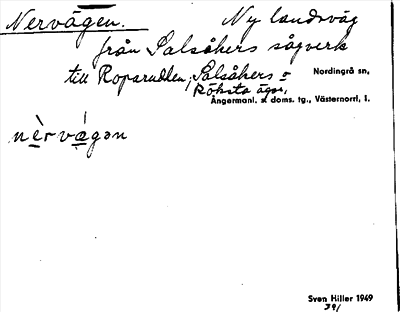 Nervägen. Ny landsväg
från Salsåkers sågverk
till Roparudden; Salsåkers o Nordingrå sn,
Röksta ägor,
Ångermanl. s doms. tg., Västernorrl. l.
nèrvágən
Sven Hiller 1949
391